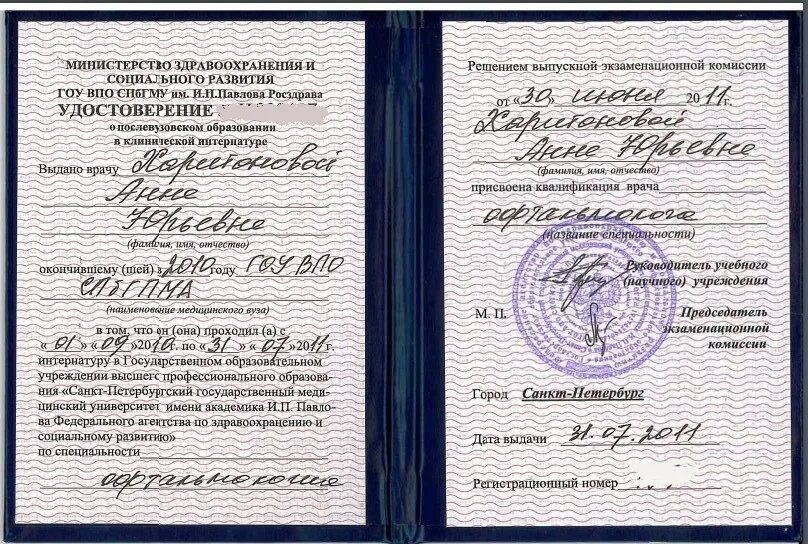 МИНИСТЕРСТВО ЗДРАВООХРАНЕНИЯ И
СОЦИАЛЬНОГО РАЗВИТИЯ
ГОУ ВПО СПбГМУ им. И.П.Павлова Росздрава
УДОСТОВЕРЕНИЕ
о послевузовском образовании
в клинической интернатуре
Выдано врачу Харитоновой
Анне
Юрьевне
(фамилия, имя, отчество)
окончившему (шей) в 2010 году ГОУ ВПО
СПбГПМА
(наименование медицинского вуза)
в том, что он (она) проходил (а) с
« 01 » « 09 »2010. по « 31 » « 07 »2011г.
интернатуру в Государственном образовательном
учреждении высшего профессионального образова-
ния «Санкт-Петербургский государственный меди-
цинский университет имени академика И.П. Павло-
ва Федерального агектства по здравоохранению и
социальному развитию»
по специальности
офтальмология
Решением выпускной экзаменационной комиссии
от «30» июня 2011г.
Харитоновой
Анне Юрьевне
(фамилия, имя, отчество)
присвоена квалификация врача
офтальмолога
(название специальности)
Руководитель учебного
(научного) учреждения
М. П.
Председатель
экзаменационной
комиссии
Город Санкт-Петербург
Дата выдачи 31.07.2011
Регистрационный номер